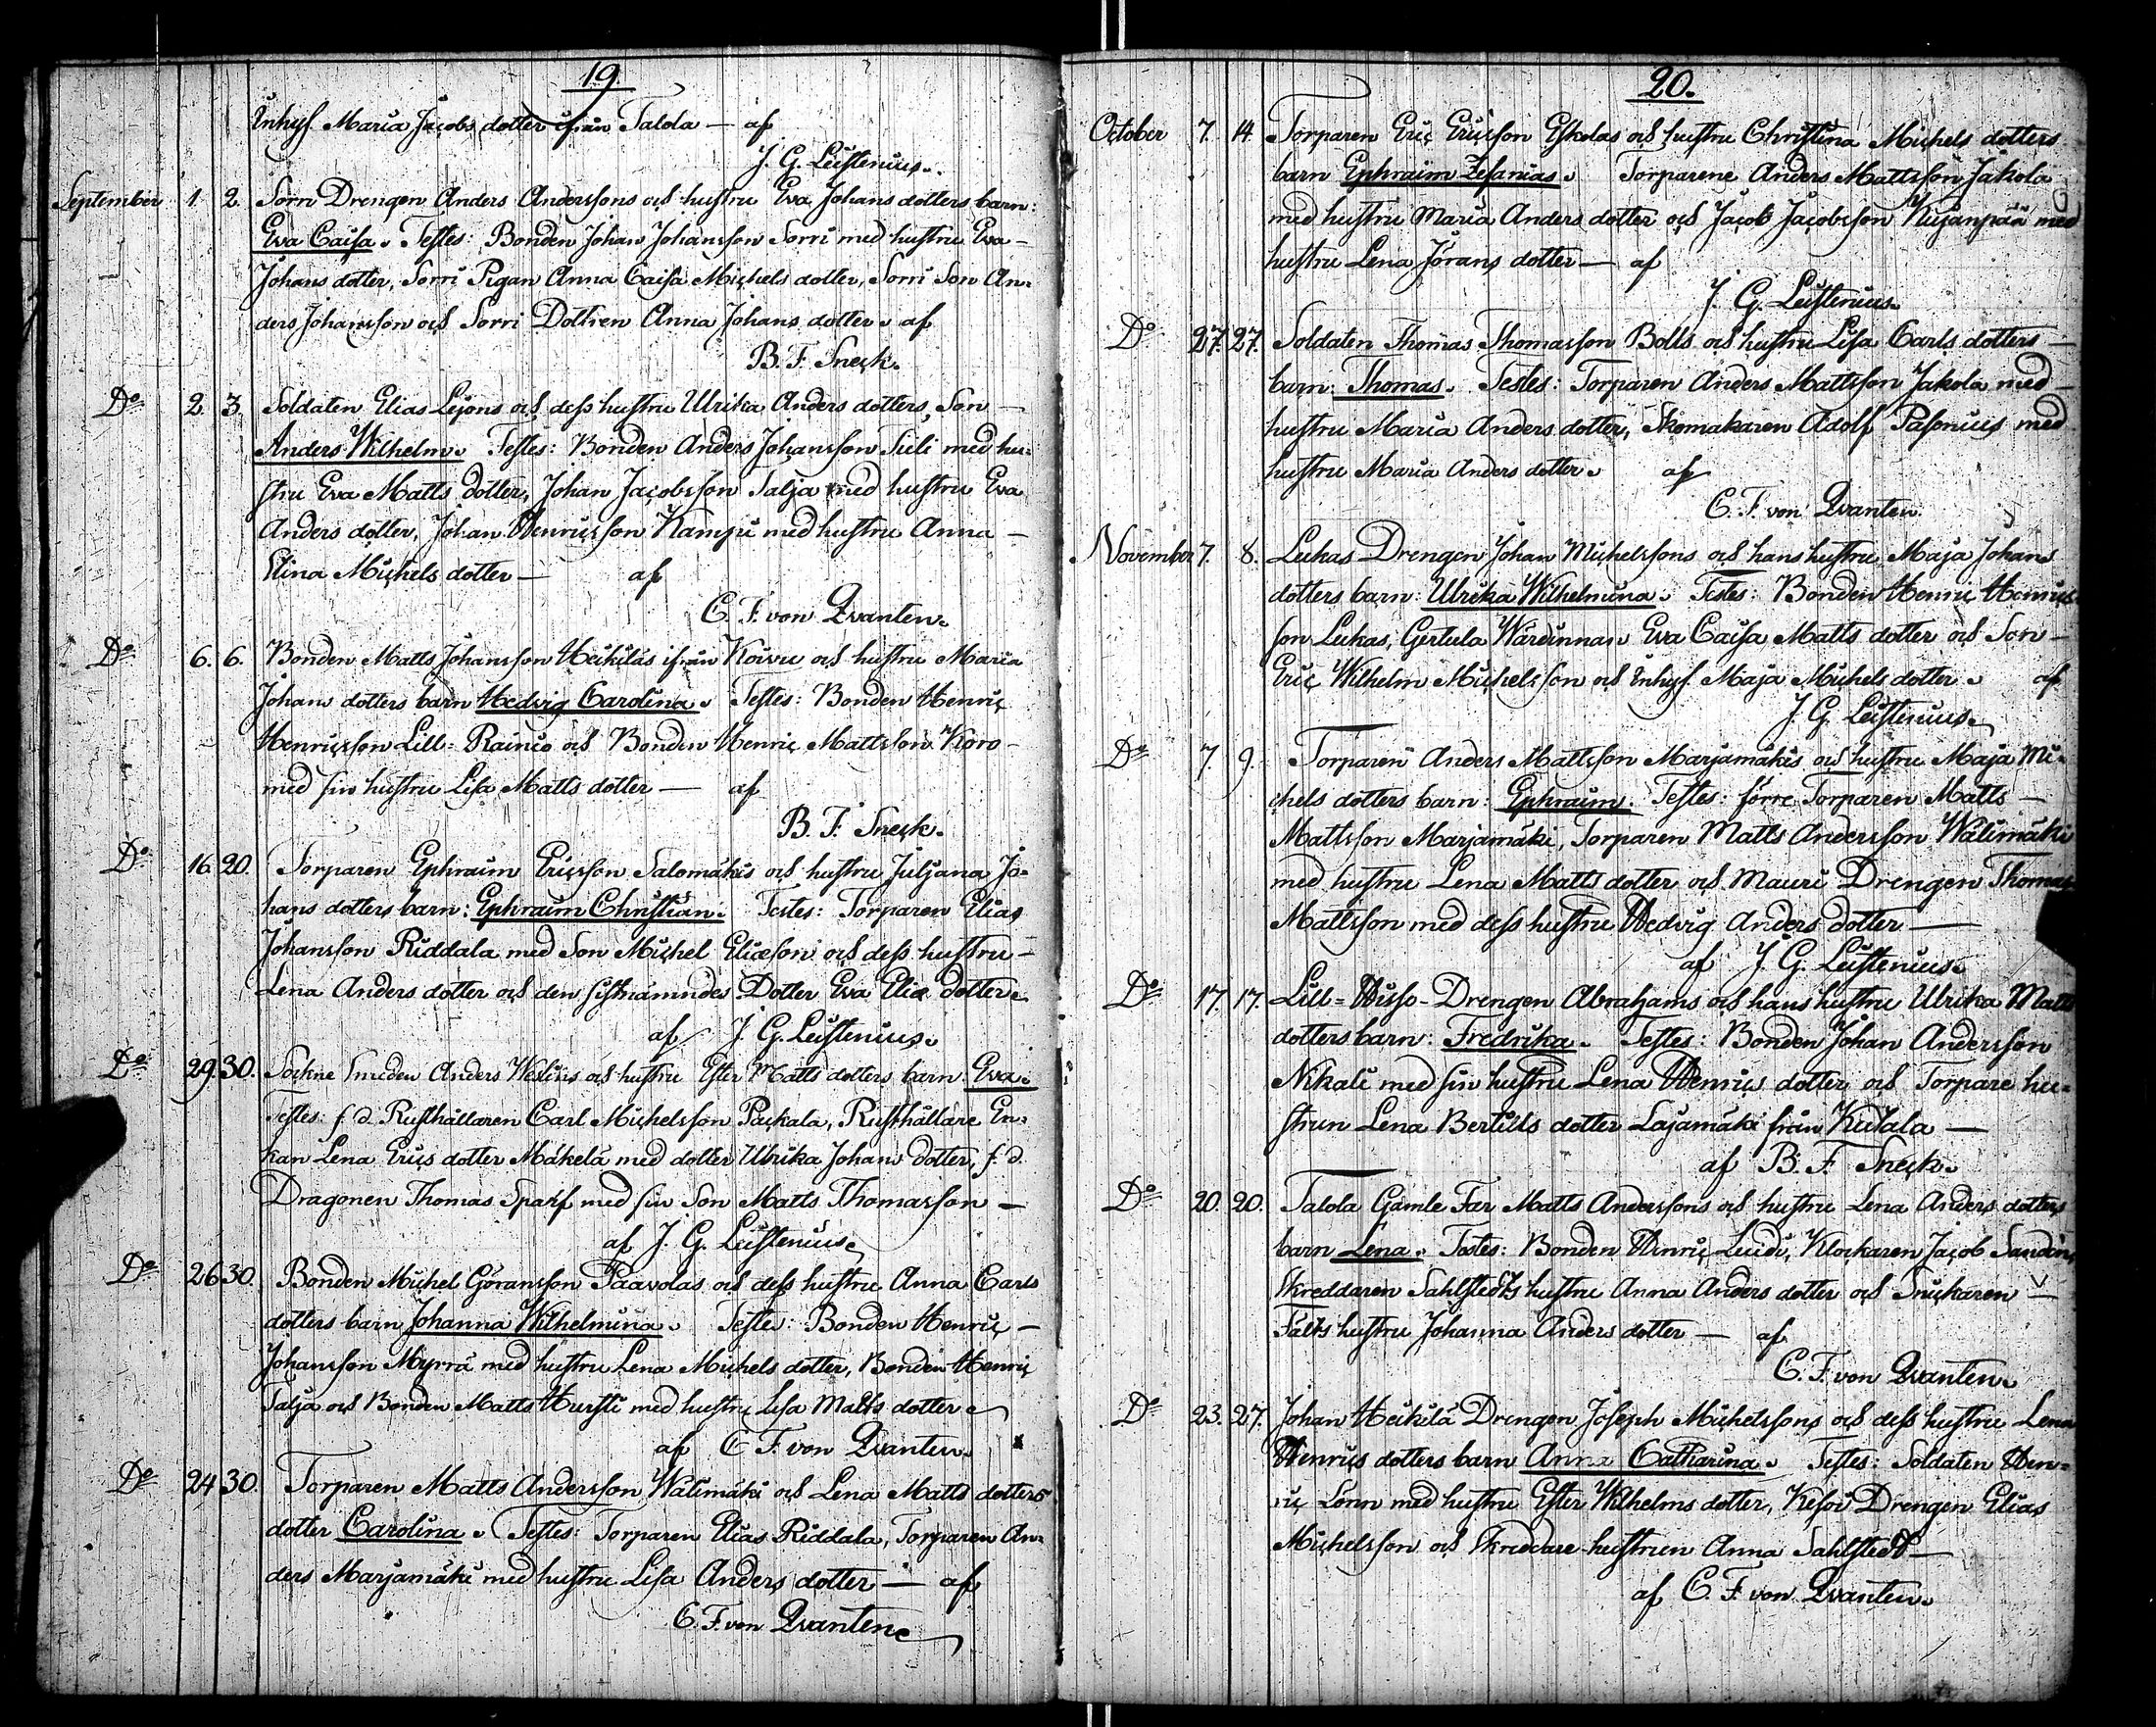 19.
Inhys. Maria Jacobs dotter ifrån Talola — af
J. G. Leistenius.
September 1. 2. Sorri Drengen Anders Anderssons och hustru Eva Johans dotters barn:
Eva Caisa. Testes: Bonden Johan Johansson Sorri med hustru Eva
Johans dotter, Sorri Pigan Anna Caisa Michels dotter, Sorri Son An=
ders Johansson och Sorri Dottren Anna Johans dotter. af
B. F. Sneck.
Do 2. 3. Soldaten Elias Lejons och dess hustru Ulrika Anders dotters, Son —
Anders Wilhelm. Testes: Bonden Anders Johansson Tuli med hu=
stru Eva Matts dotter, Johan Jacobsson Talja med hustru Eva
Anders dotter, Johan Henricsson Kamppi med hustru Anna —
Elina Michels dotter — af
C. F. von Qvanten.
Do 6. 6. Bonden Matts Johansson Heikiläs ifrån Koivu och hustru Maria
Johans dotters barn Hedvig Carolina. Testes: Bonden Henric
Henricsson Lill= Rainio och Bonden Henric Mattsson Koro —
med sin hustru Lisa Matts dotter — af
B. F. Sneck.
Do 16. 20. Torparen Ephraim Ericsson Salomäkis och hustru Juljana Jo=
hans dotters barn: Ephraim Christian. Testes: Torparen Elias
Johansson Riddala med Son Michel Eliæson och dess hustru —
Lena Anders dotter och den sistnämndes Dotter Eva Eliæ dotter.
af J. G. Leistenius.
Do 29. 30. Sockne Smeden Anders Weslins och hustru Ester Matts dotters barn Eva.
Testes: f. d. Rusthållaren Carl Michelsson Packala, Rusthållare En=
kan Lena Erics dotter Mäkelä med dotter Ulrika Johans dotter, f. d.
Dragonen Thomas Sparf med sin Son Matts Thomasson —
af J. G. Leistenius.
Do 26 30. Bonden Michel Göransson Paavolas och dess hustru Anna Carls
dotters barn Johanna Wilhelmina. Testes: Bonden Henric —
Johansson Myrrä med hustru Lena Michels dotter, Bonden Henric
Talja och Bonden Matts Hursti med hustru Lisa Matts dotter
af C F. von Qvanten.
Do 24 30. Torparen Matts Andersson Wälimäki och Lena Matts dotters
dotter Carolina. Testes: Torparen Elias Riddala, Torparen An=
ders Marjamäki med hustru Lisa Anders dotter — af
C. F. von Qvanten
20.
October 7. 14. Torparen Eric Ericsson Eskolas och hustru Christina Michels dotters
barn Ephraim Zefanias. Torparene Anders Mattsson Jakola
med hustru Maria Anders dotter och Jacob Jacobsson Kujanpää med
hustru Lena Jörans dotter — af
J. G. Leistenius.
Do 27. 27. Soldaten Thomas Thomasson Bolls och hustru Lisa Carls dotters —
barn: Thomas. Testes: Torparen Anders Mattsson Jakola med —
hustru Maria Anders dotter, Skomakaren Adolf Pasonius med
hustru Maria Anders dotter. af
C. F. von Qvanten.
November 7. 8. Lukas Drengen Johan Michelssons och hans hustru Maja Johans
dotters barn: Ulrika Wilhelmina. Testes: Bonden Henric Henrics=
son Lukas, Gertula Wärdinnan Eva Caisa Matts dotter och Son —
Eric Wilhelm Michelsson och Inhys. Maja Michels dotter. af
J. G. Leistenius.
Do 7. 9. Torparen Anders Mattsson Marjamäkis och hustru Maja Mi=
chels dotters barn: Ephraim. Testes: förre Torparen Matts —
Mattsson Marjamäki, Torparen Matts Andersson Wälimäki
med hustru Lena Matts dotter och Mauri Drengen Thomas
Mattsson med dess hustru Hedvig Anders dotter —
af J. G. Leistenius.
Do 17. 17. Lill= Hisso- Drengen Abrahams och hans hustru Ulrika Matts
dotters barn: Fredrika. Testes: Bonden Johan Andersson
Nikali med sin hustru Lena Henrics dotter och Torpare hu=
strun Lena Bertills dotter Lajamäki från Kutala —
af B. F. Sneck.
Do 20. 20. Talola Gamle Far Matts Anderssons och hustru Lena Anders dotters
barn Lena. Testes: Bonden Henric Luidi, Klockaren Jacob Sandén,
Skreddaren Sahlstedts hustru Anna Anders dotter och Snickaren —
Fälts hustru Johanna Anders dotter — af
C. F. von Qvanten.
Do 23. 27. Johan Heikilä Drengen Joseph Michelssons och dess hustru Lena
Henrics dotters barn Anna Catharina. Testes: Soldaten Hen=
ric Lönn med hustru Ester Wilhelms dotter, Kesoi Drengen Elias
Michelsson och Skreddare hustrun Anna Sahlstedt —
af C. F. von Qvanten.